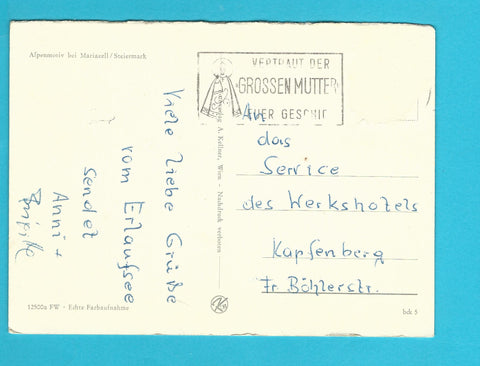 Alpenmotiv bei Mariazell/Steiermark
VERTRAUT DER
GROSSEN MUTTER
EUER GESCHIC
Viele liebe Grüße
vom Erlaufsee
sendet
Anni +
An
das
Service
des Werkshotels
Kapfenberg
Fr. Böhlerstr.
A. Kellner, Wien - Nachdruck verboten
12500a PW - Echte Farbaufnahme
bdk 5